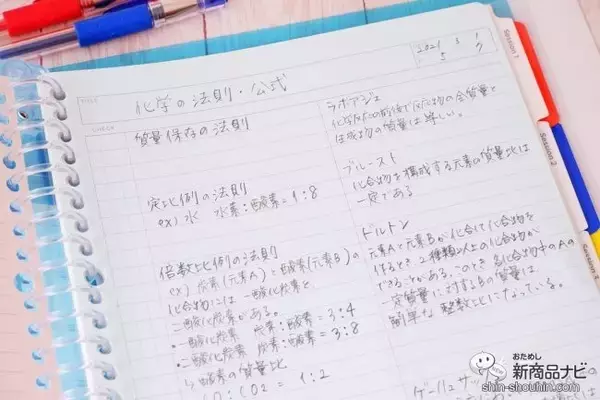 化学の法則・公式
CHECK
質量保存の法則
定比例の法則
ex) 水 水素：酸素＝1：8
倍数比例の法則
ex) 炭素(元素A)と酸素(元素B)の
化合物には一酸化炭素と
二酸化炭素がある。
・一酸化炭素 炭素：酸素＝3：4
・二酸化炭素 炭素：酸素＝3：8
酸素の質量比
CO：CO2＝1：2
2021
ラボアジェ
化学反応の前後で反応物の全質量と
生成物の質量は等しい。
プルースト
化合物を構成する元素の質量比は
一定である
ドルトン
元素Aと元素Bが化合して化合物を
作るとき、2種類以上の化合物が
できることがある。このとき各化合物中のAの
一定質量に対するBの質量は
簡単な整数比になっている。
Session 1
Session 2
おためし
新商品ナビ
shin-shouhin.com